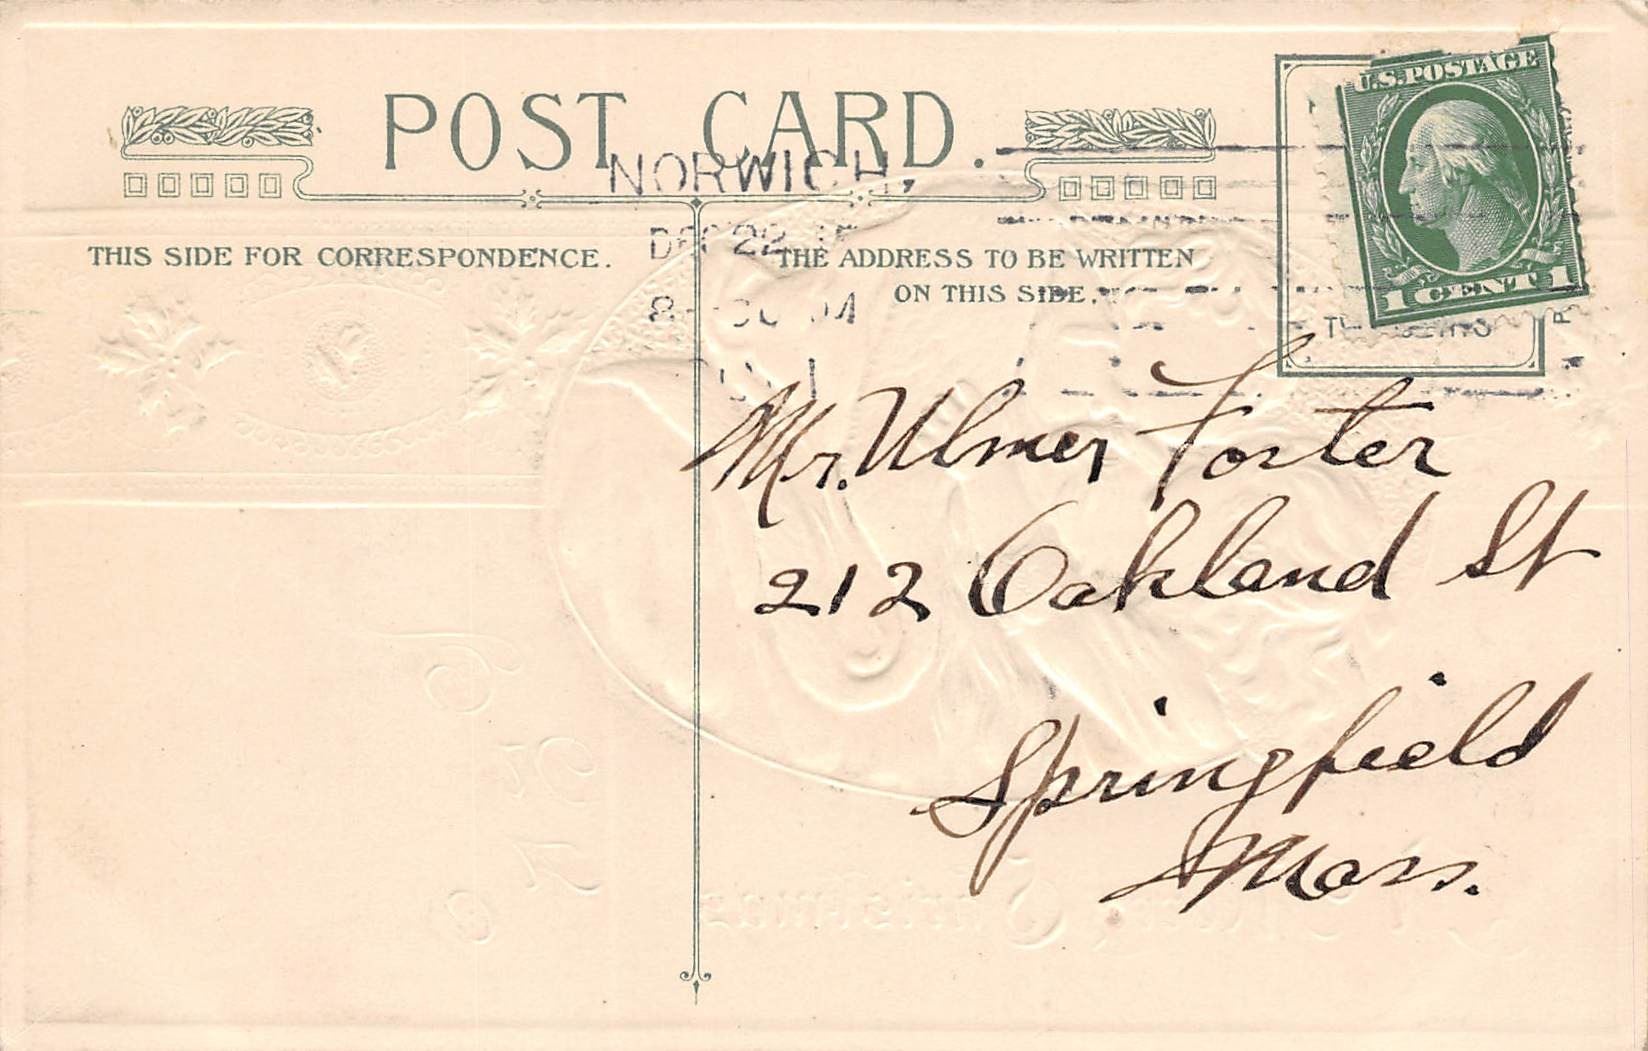 POST CARD.
NORWICH,
DEC 22
THIS SIDE FOR CORRESPONDENCE.
THE ADDRESS TO BE WRITTEN
ON THIS SIDE.
U.S. POSTAGE
1 CENT 1
Mr. Ulmer Foster
212 Oakland St
Springfield
Mass.
A Merry Christmas